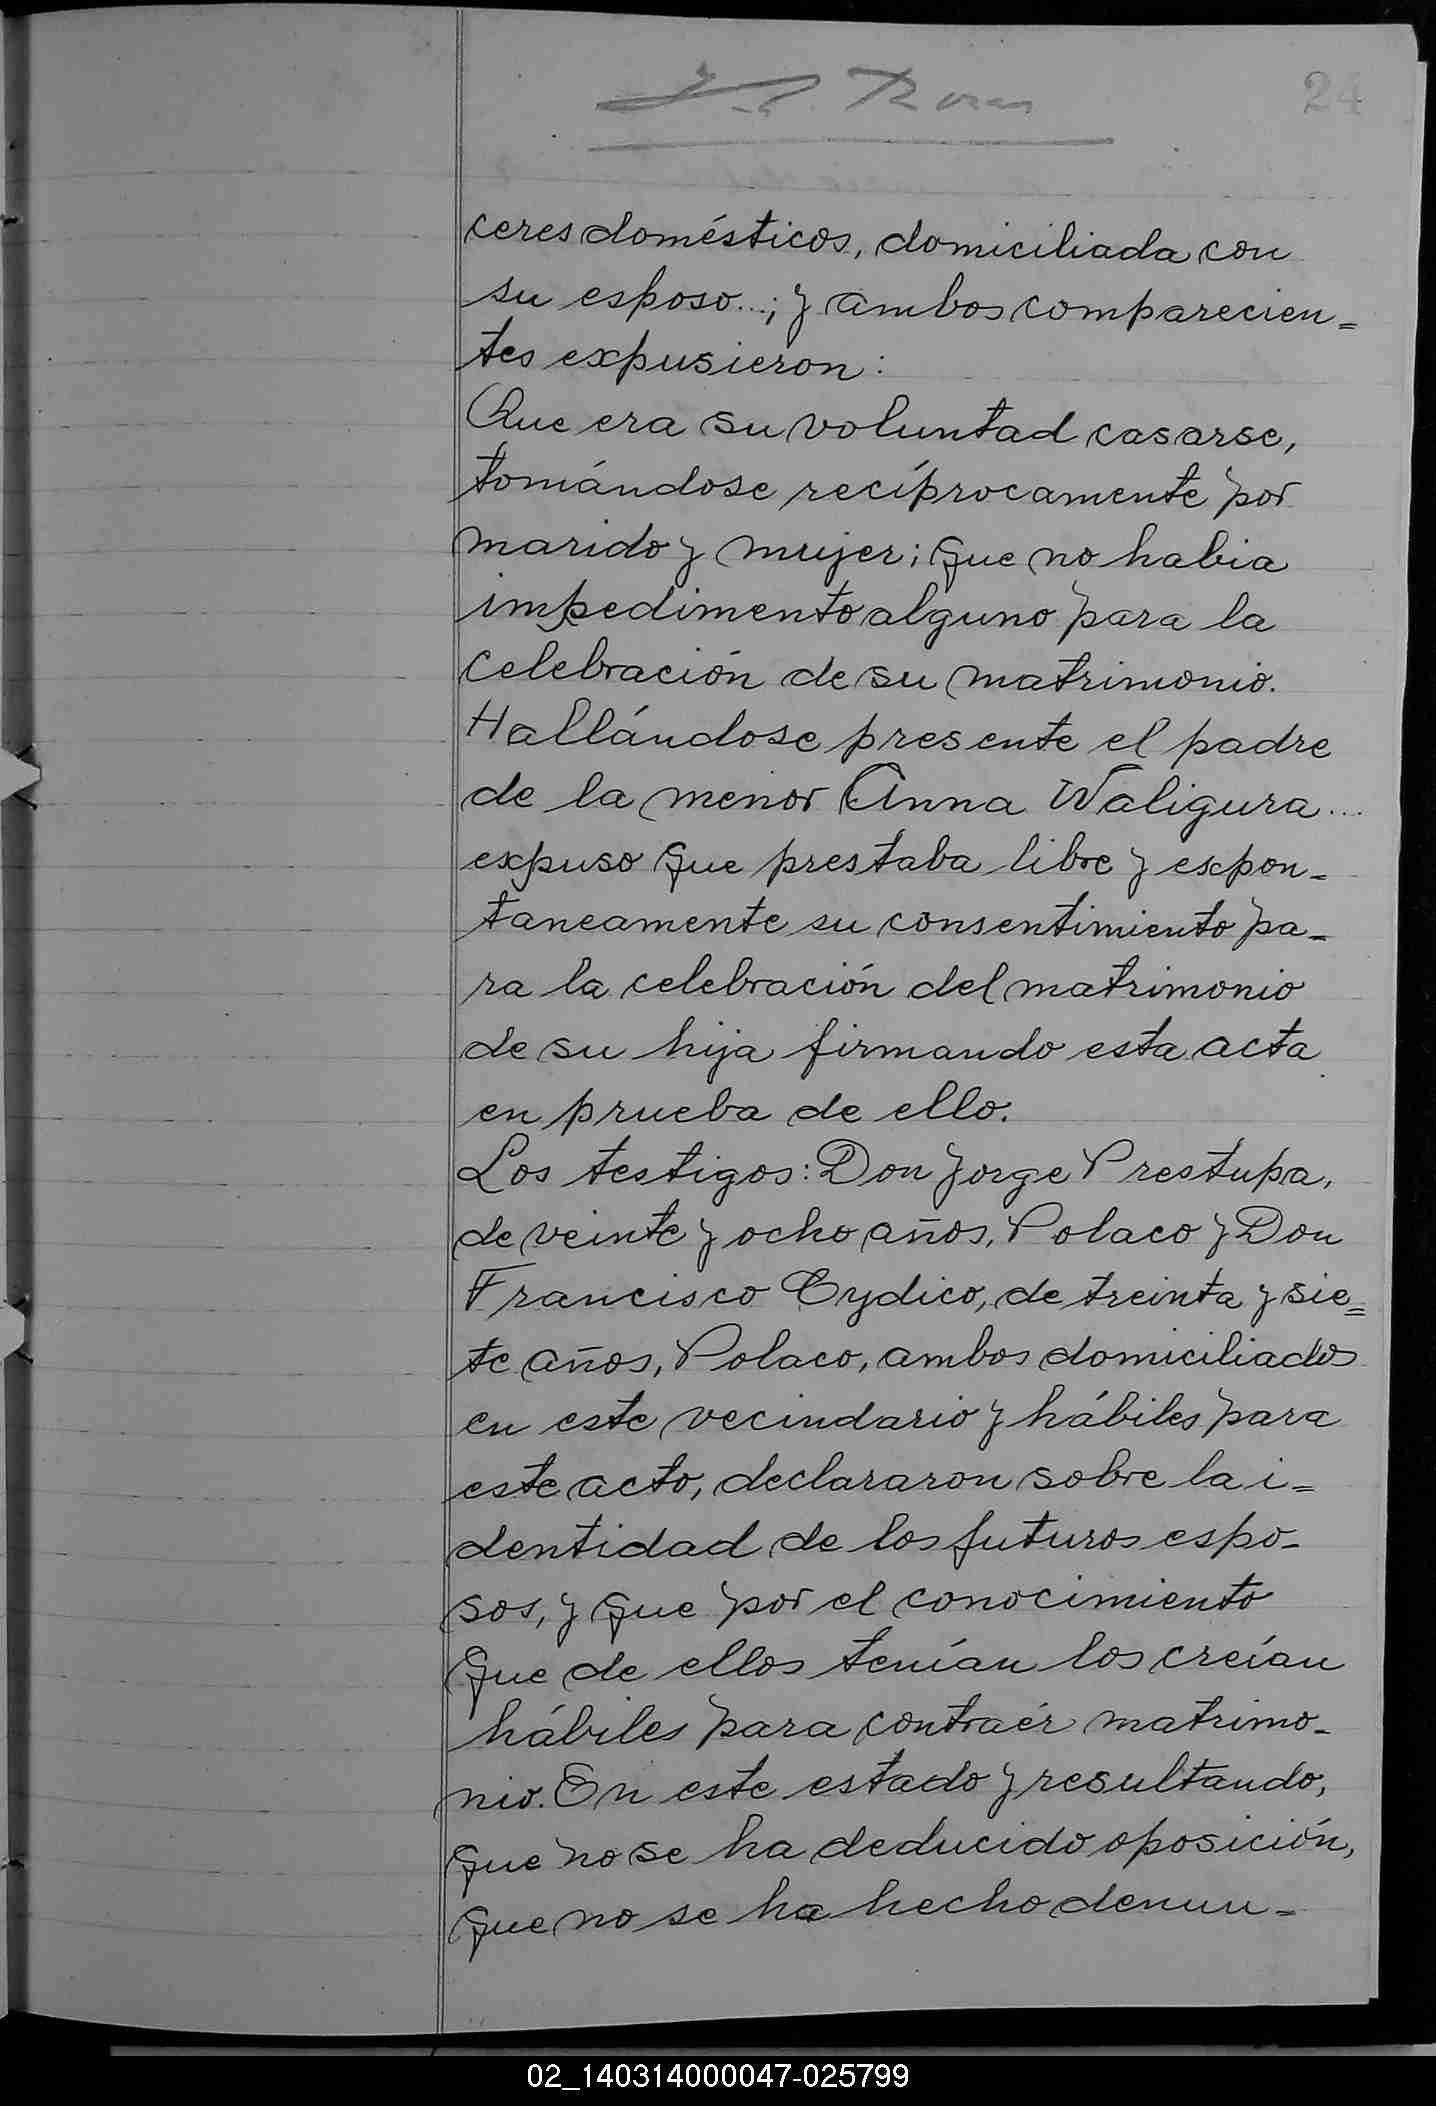 24
ceres domésticos, domiciliada con
su esposo...; y ambos comparecien=
tes expusieron:
Que era su voluntad casarse,
tomándose recíprocamente por
marido y mujer; que no habia
impedimento alguno para la
celebración de su matrimonio.
Hallándose presente el padre
de la menor Anna Waligura....
expuso que prestaba libre y expon-
taneamente su consentimiento pa-
ra la celebración del matrimonio
de su hija firmando esta acta
en prueba de ello.
Los testigos: Don Jorge Prestupa,
de veinte y ocho años, Polaco y Don
Francisco Cydico, de treinta y sie=
te años, Polaco, ambos domiciliados
en este vecindario y hábiles para
este acto, declararon sobre la i=
dentidad de los futuros espo-
sos, y que por el conocimiento
que de ellos tenían los creían
hábiles para contraér matrimo-
nio. En este estado y resultando,
que no se ha deducido oposición,
que no se ha hecho denun-
02_140314000047-025799